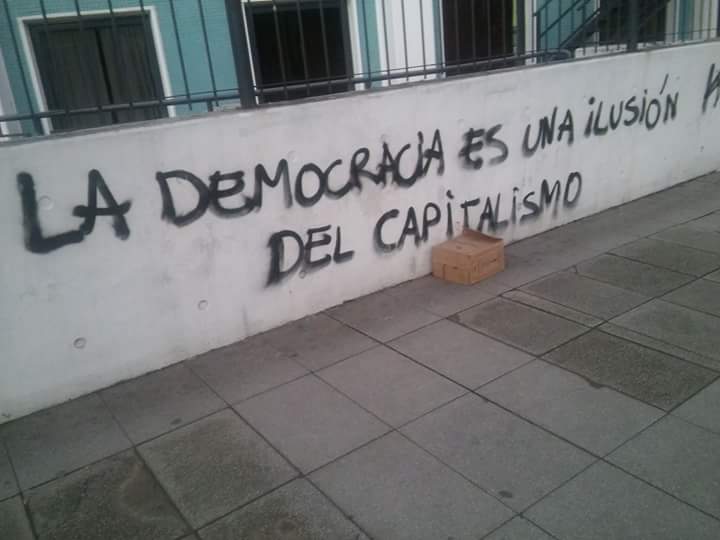 LA DEMOCRACiA ES UNA iLUSiÓN
DEL CAPiTALiSMO